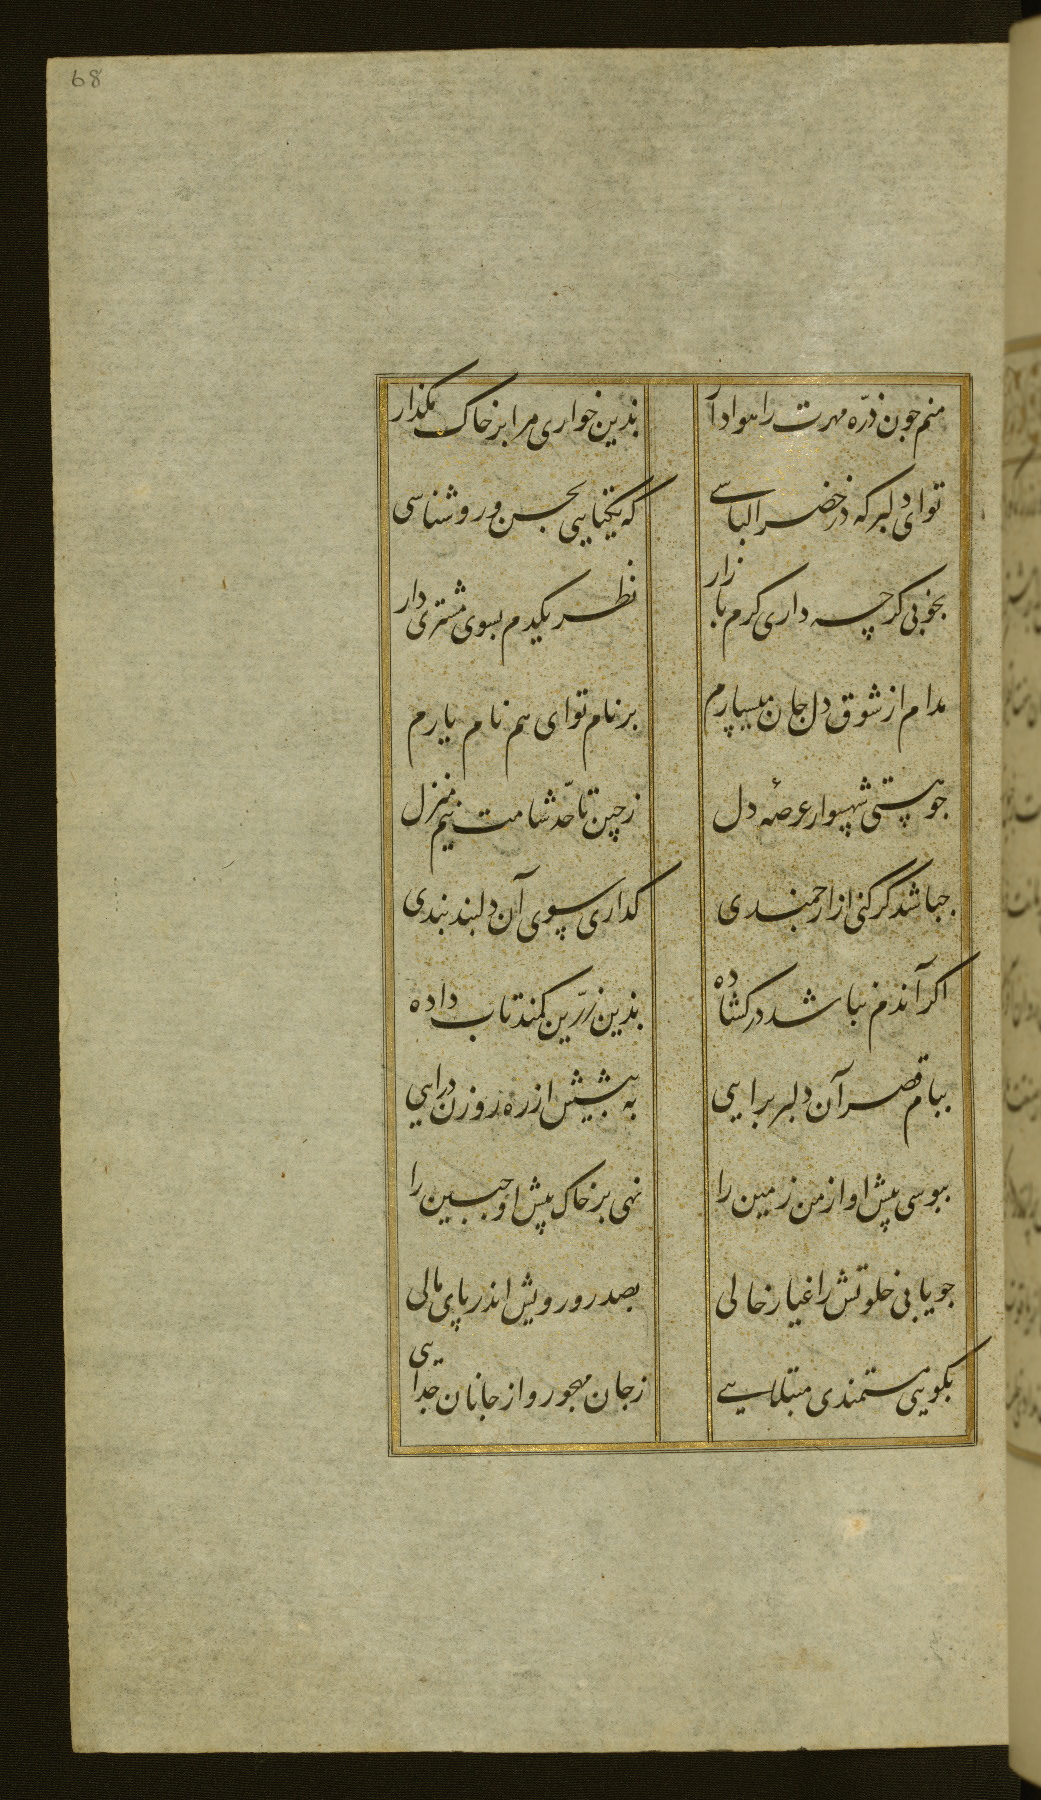 68
منم جون ذرّه مهرت را هوادآ
بذین خواری مرا بر خاک بگذار
تو ای دلبر که در خضر الباسے
که یکتایی بحسن و روشناسی
بخوبی کرچه داری کرم بازار
نظر یکدم بسوی مشتری دار
مدام از شوق دل جان میسپارم
بر نام تو ای هم نام یارم
جو هستی شهسوار عرصهٔ دل
ز چین تا حدّ شامت نیم منزل
جباشد گر کنی از ارجمندی
کداری سوی آن دلبند بندی
اکر آندم نباشد در کشاده
بذین زرّین کمند تاب داده
ببام قصر آن دلبر برایی
به پیشش از ره روزن درایی
ببوسی پیش او از من زمین را
نهی بر خاک پیش او جبین را
جو یابی خلوتش ز اغیار خالی
بصد رو رویش اندر پای مالی
بکویی مستمندی مبتلایے
ز جان مهجور و از جانان جدایی